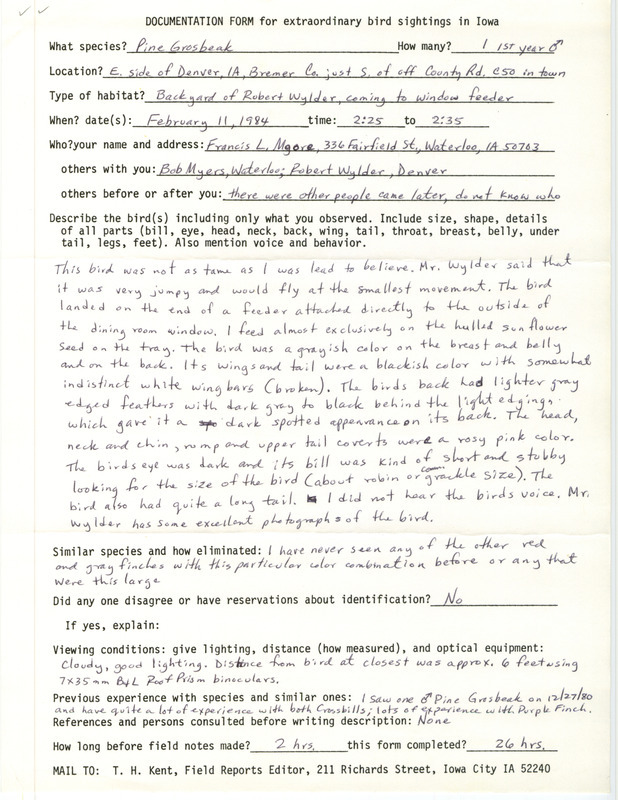 DOCUMENTATION FORM for extraordinary bird sightings in Iowa
What species? Pine Grosbeak How many? 1 1st year ♂
Location? E. side of Denver, IA, Bremer Co. just S. of off County Rd. C50 in town
Type of habitat? Backyard of Robert Wylder, coming to window feeder
When? date(s): February 11, 1984 time: 2:25 to 2:35
Who?your name and address: Francis L. Moore, 336 Fairfield St., Waterloo, IA 50703
others with you: Bob Myers, Waterloo; Robert Wylder, Denver
others before or after you: there were other people came later, do not know who
Describe the bird(s) including only what you observed. Include size, shape, details
of all parts (bill, eye, head, neck, back, wing, tail, throat, breast, belly, under
tail, legs, feet). Also mention voice and behavior.
This bird was not as tame as I was lead to believe. Mr. Wylder said that
it was very jumpy and would fly at the smallest movement. The bird
landed on the end of a feeder attached directly to the outside of
the dining room window. I feed almost exclusively on the hulled sunflower
seed on the tray. The bird was a grayish color on the breast and belly
and on the back. Its wings and tail were a blackish color with somewhat
indistinct white wingbars (broken). The birds back had lighter gray
edged feathers with dark gray to black behind the light edgings.
which gave it a dark spotted appearance on its back. The head,
neck and chin, rump and upper tail coverts were a rosy pink color.
The birds eye was dark and its bill was kind of short and stubby
looking for the size of the bird (about robin or com. grackle size). The
bird also had quite a long tail. I did not hear the birds voice. Mr.
Wylder has some excellent photographs of the bird.
Similar species and how eliminated: I have never seen any of the other red
and gray finches with this particular color combination before or any that
were this large
Did any one disagree or have reservations about identification? No
If yes, explain:
Viewing conditions: give lighting, distance (how measured), and optical equipment:
Cloudy, good lighting. Distance from bird at closest was approx. 6 feet using
7x35mm B&L Roof Prism binoculars.
Previous experience with species and similar ones: I saw one ♂ Pine Grosbeak on 12/27/80
and have quite a lot of experience with both Crossbills; lots of experience with Purple Finch.
References and persons consulted before writing description: None
How long before field notes made? 2 hrs. this form completed? 26 hrs.
MAIL TO: T. H. Kent, Field Reports Editor, 211 Richards Street, Iowa City IA 52240